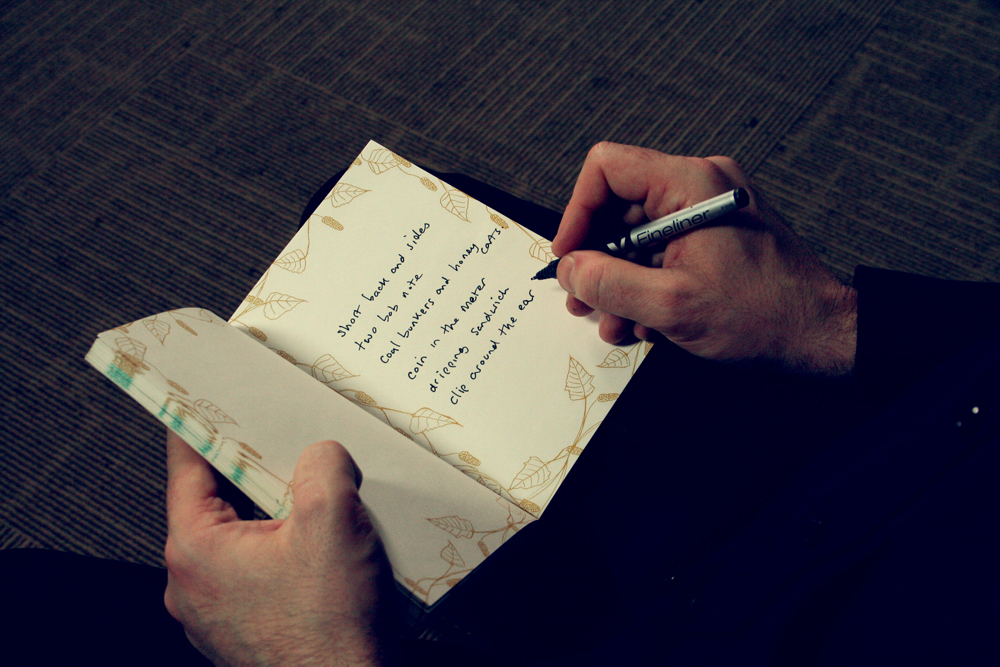 short back and sides
two bob note
coal bunkers and honey
carts
coin in the meter
dripping sandwich
clip around the ear
Fineliner